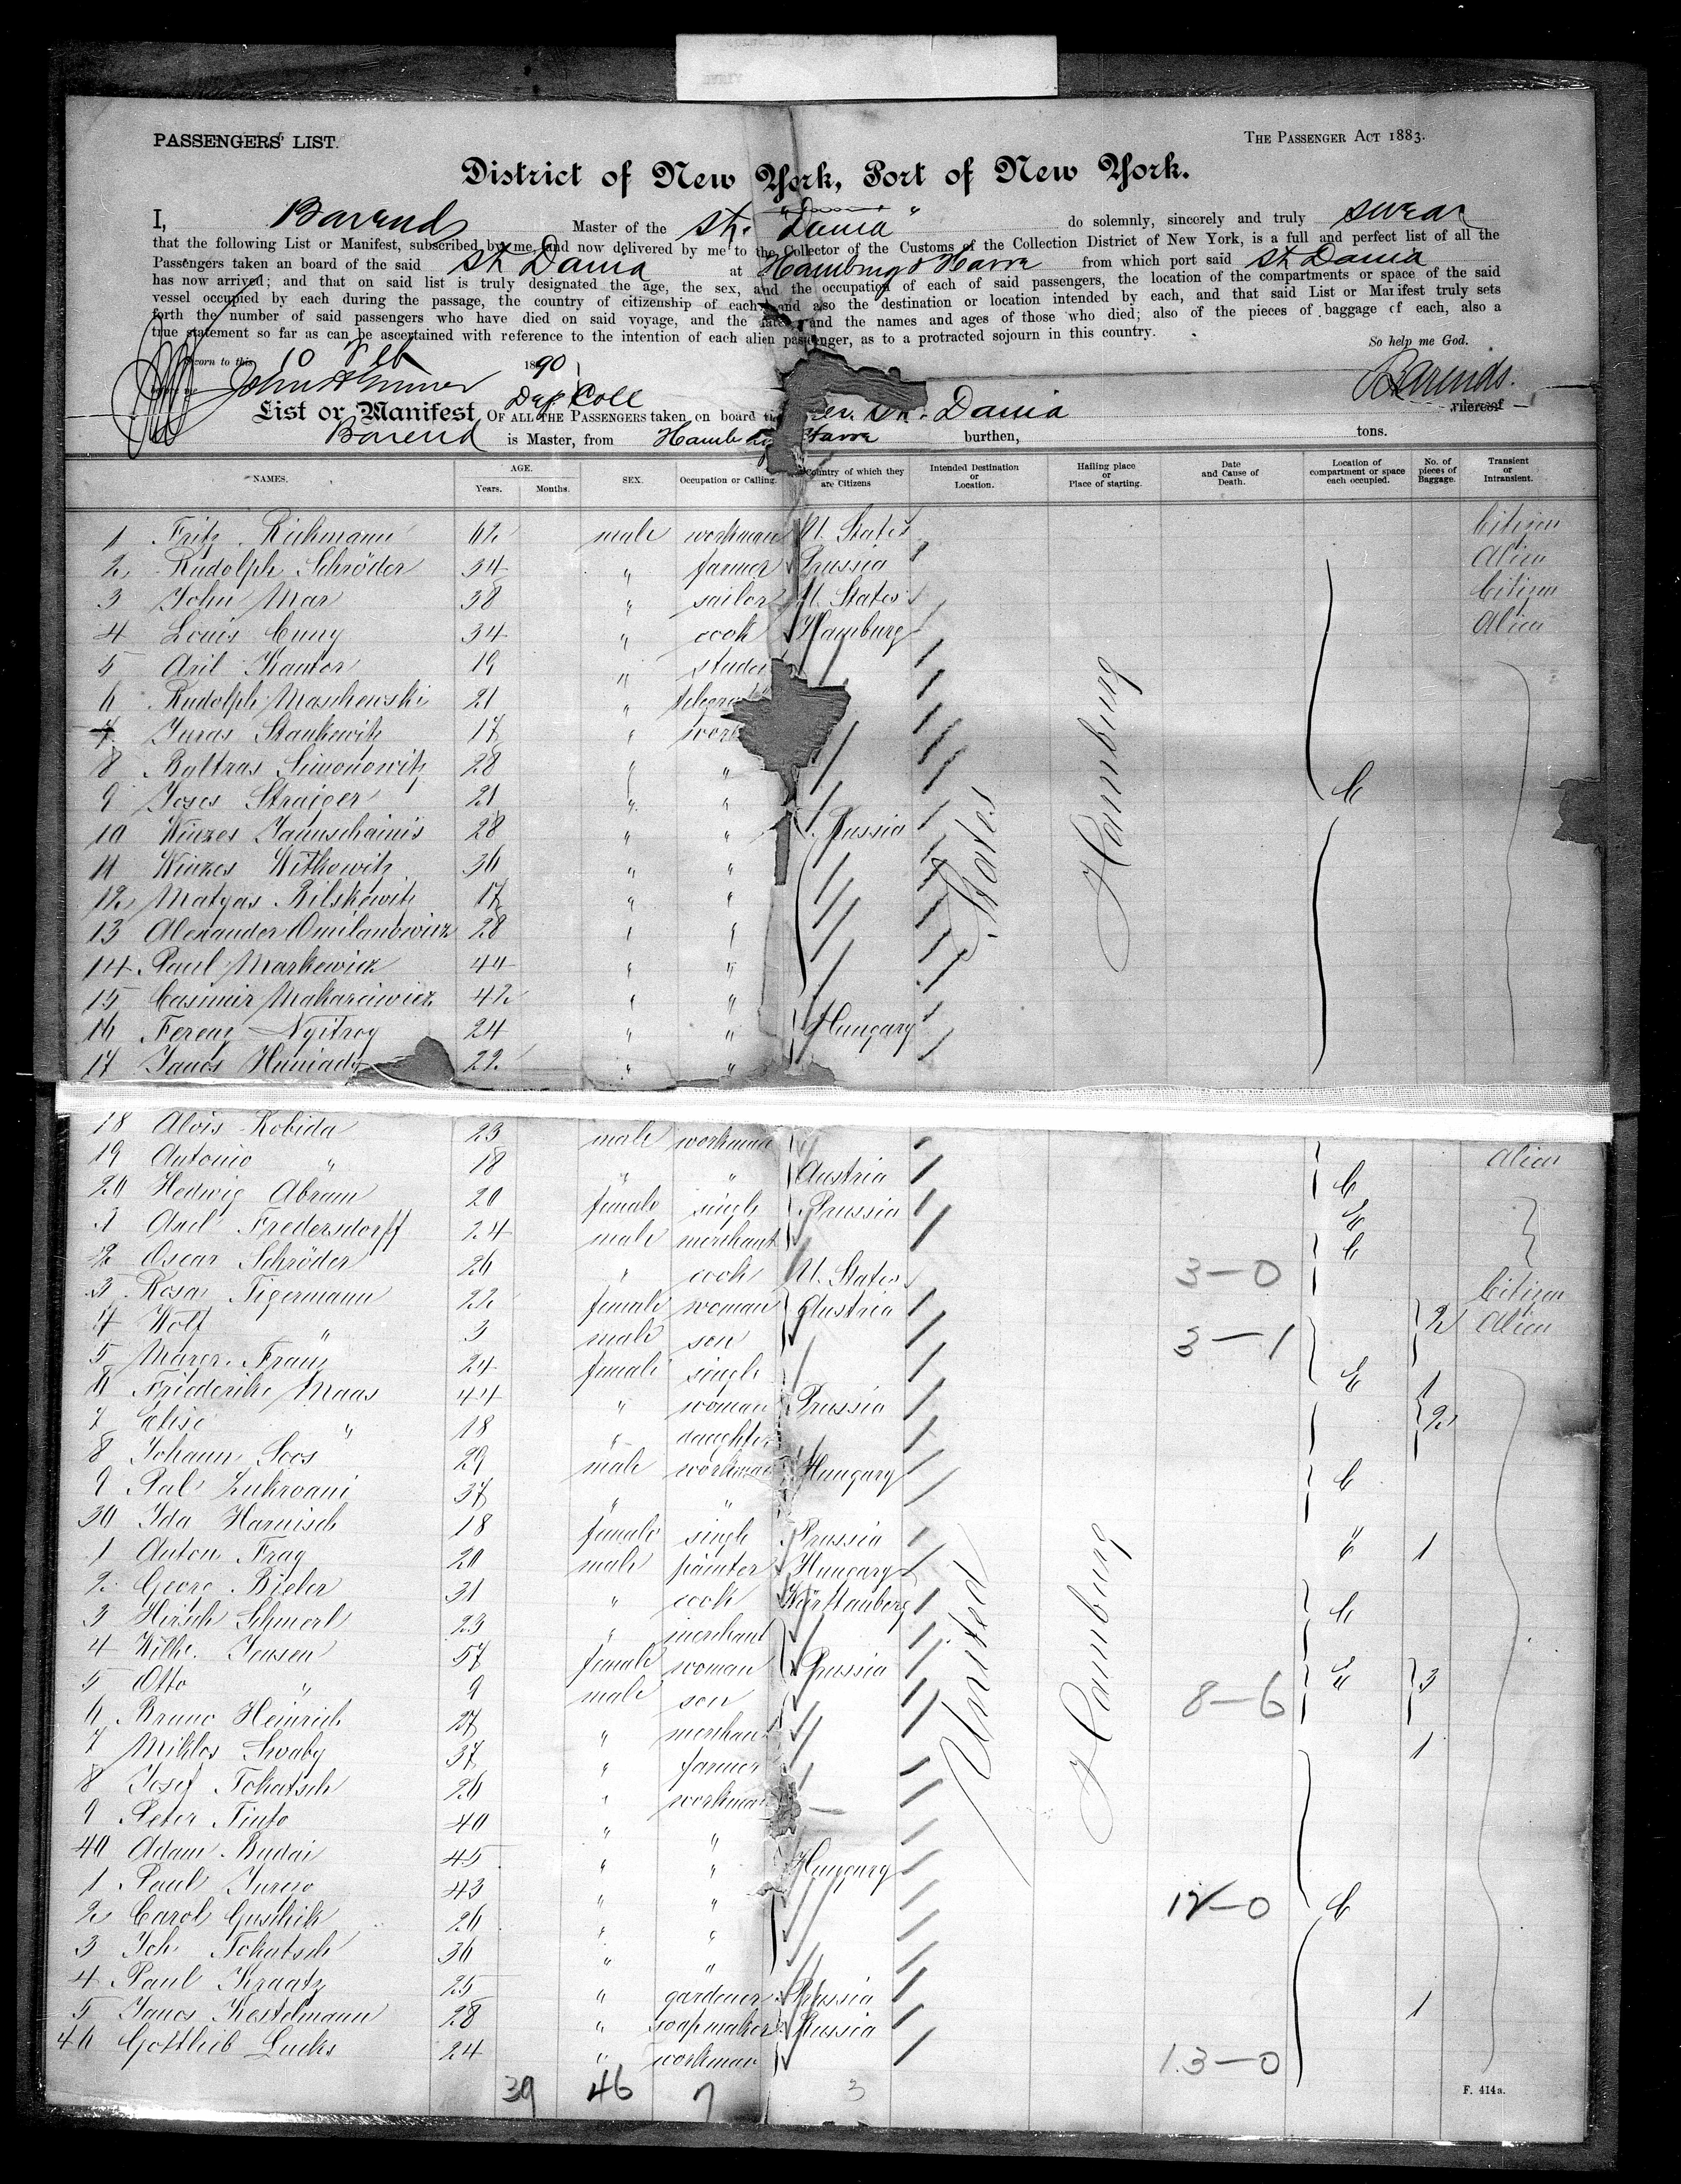 PASSENGERS' LIST.
THE PASSENGER ACT 1883.
District of New York, Port of New York.
I, Barend Master of the str. "Dania" do solemnly, sincerely and truly swear
that the following List or Manifest, subscribed by me, and now delivered by me to the Collector of the Customs of the Collection District of New York, is a full and perfect list of all the
Passengers taken an board of the said str Dania at Hamburg & Havre from which port said str Dania
has now arrived; and that on said list is truly designated the age, the sex, and the occupation of each of said passengers, the location of the compartments or space of the said
vessel occupied by each during the passage, the country of citizenship of each, and also the destination or location intended by each, and that said List or Manifest truly sets
forth the number of said passengers who have died on said voyage, and the dates and the names and ages of those who died; also of the pieces of baggage of each, also a
true statement so far as can be ascertained with reference to the intention of each alien passenger, as to a protracted sojourn in this country.
So help me God.
Sworn to this 10 Feb 1890
Barends.
Dep Coll
List or Manifest OF ALL THE PASSENGERS taken on board the Ger. str. Dania whereof
Barend is Master, from Hamburg Havre burthen, tons.
NAMES. AGE. Years. Months. SEX. Occupation or Calling. Country of which they are Citizens Intended Destination or Location. Hailing place or Place of starting. Date and Cause of Death. Location of compartment or space each occupied. No. of pieces of Baggage. Transient or Intransient.
1 Fritz Rickmann 62 male workman U. States Citizen
2 Rudolph Schröder 34 " farmer Prussia Alien
3 John Mar 38 " sailor U. States Citizen
4 Louis Cuny 34 " cook Hamburg Alien
5 Aril Kantor 19 " studen
6 Rudolph Maschewski 21 "
7 Juras Stankewitz 17 " work
8 Baltras Simonowitz 28 " "
9 Joses Straiger 21 " " C
10 Winzes Januschainis 28 " " Russia
11 Winzes Witkowitz 36 " "
12 Matyas Bilskewitz 17 " "
13 Alexander Omilanowicz 28 " "
14 Paul Markewicz 44 " "
15 Casimir Makarciwicz 42 " "
16 Ferenz Nyitroy 24 " " Hungary
17 Janos Huniady 22 " "
States
Hamburg
18 Alois Robida 23 male workman
19 Antonio " 18 " " Austria C Alien
20 Hedwig Abram 20 female single Prussia E
1 Axel Fredersdorff 24 male merchant C
2 Oscar Schröder 26 " cook U. States 3-0 Citizen
3 Rosa Tigermann 22 female woman Austria 2 Alien
4 Wolf " 3 male son 3-1
5 Margr. Franz 24 female single E 1
6 Friederike Maas 44 " woman Prussia 2
7 Elise " 18 " daughter
8 Johann Soos 29 male workman Hungary C
9 Pal Zukrovani 37 " "
30 Ida Harnisch 18 female single Prussia E 1
1 Anton Frag 20 male painter Hungary
2 Georg Bieler 31 " cook Württemberg C
3 Hirsch Schmerl 23 " merchant
4 Wilhe. Jensen 57 female woman Prussia E 3
5 Otto " 9 male son 8-6
6 Bruno Heinrich 27 " merchant
7 Miklos Svaby 37 " farmer 1
8 Josef Tokatsch 26 " workman
9 Peter Tinto 40 " "
40 Adam Budai 45 " " Hungary
1 Paul Jureso 43 " " 12-0 C
2 Carol Gusthik 26 " "
3 Joh. Tokatsch 36 " "
4 Paul Kraatz 25 " gardener Prussia
5 Janos Kestelmann 28 " soapmaker Russia 1
46 Gottlieb Lucks 24 " workman 13-0
United
Hamburg
39 46 7 3
F. 414a.